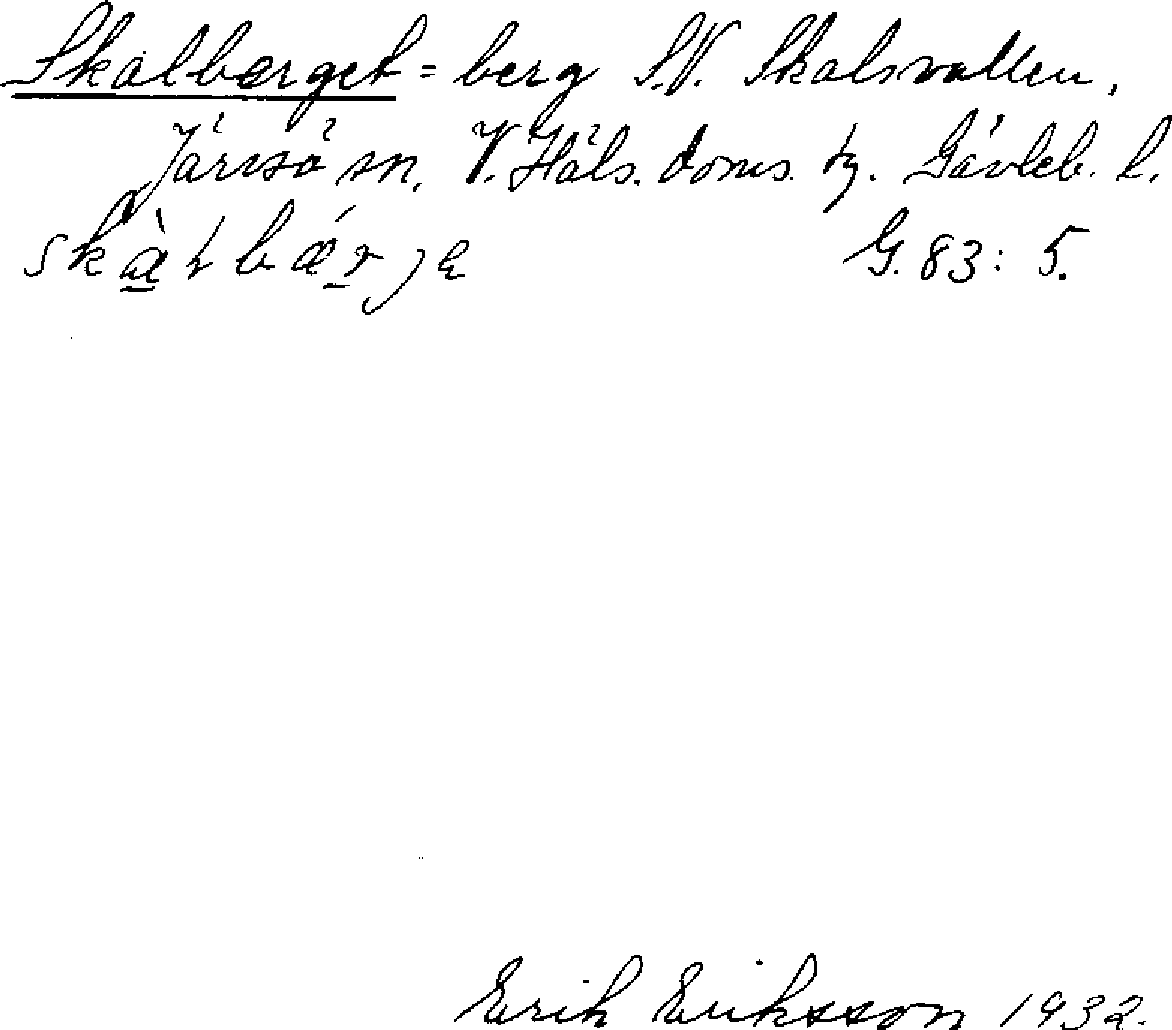 Skalberget = berg S.V. Skalsvallen,
Järvsö sn. V. Häls. doms. tg. Gävleb. l.
skàlbǽrje G. 83: 5.
Erik Eriksson 1932.